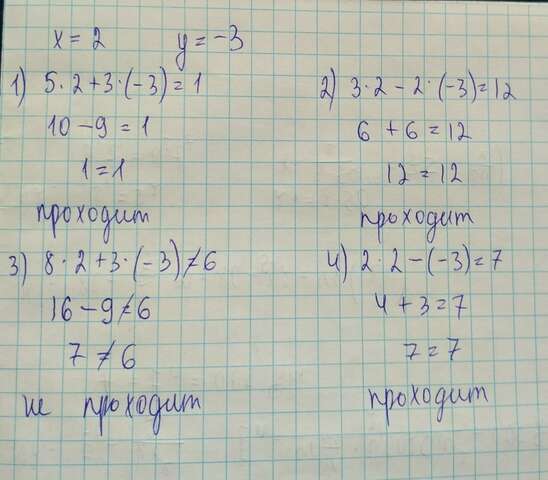 x = 2 y = -3
1) 5·2+3·(-3)=1
10-9=1
1=1
проходит
2) 3·2-2·(-3)=12
6+6=12
12=12
проходит
3) 8·2+3·(-3)≠6
16-9≠6
7≠6
не проходит
4) 2·2-(-3)=7
4+3=7
7=7
проходит